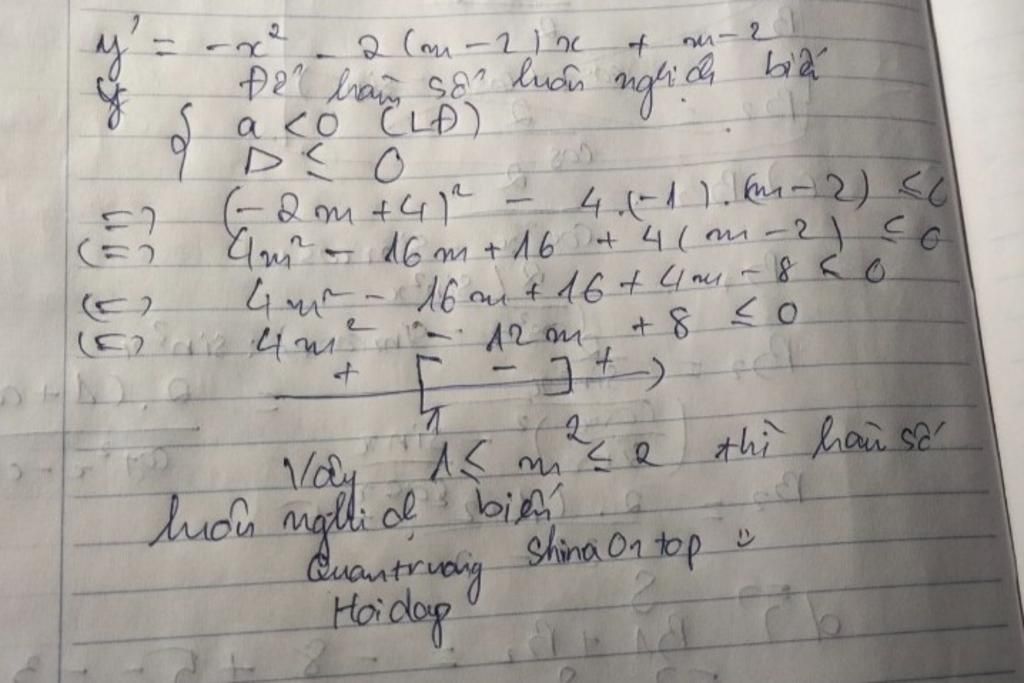 y' = -x² - 2(m-2)x + m-2
y Để hàm số luôn nghịch biến
{ a < 0 (LĐ)
D ≤ 0
=> (-2m+4)² - 4.(-1).(m-2) ≤ 0
<=> 4m² - 16m + 16 + 4(m-2) ≤ 0
<=> 4m² - 16m + 16 + 4m - 8 ≤ 0
<=> 4m² - 12m + 8 ≤ 0
+ [ - ] +
1 2
Vậy 1 ≤ m ≤ 2 thì hàm số
luôn nghịch biến
Quantruong Shina On top
Hoidap